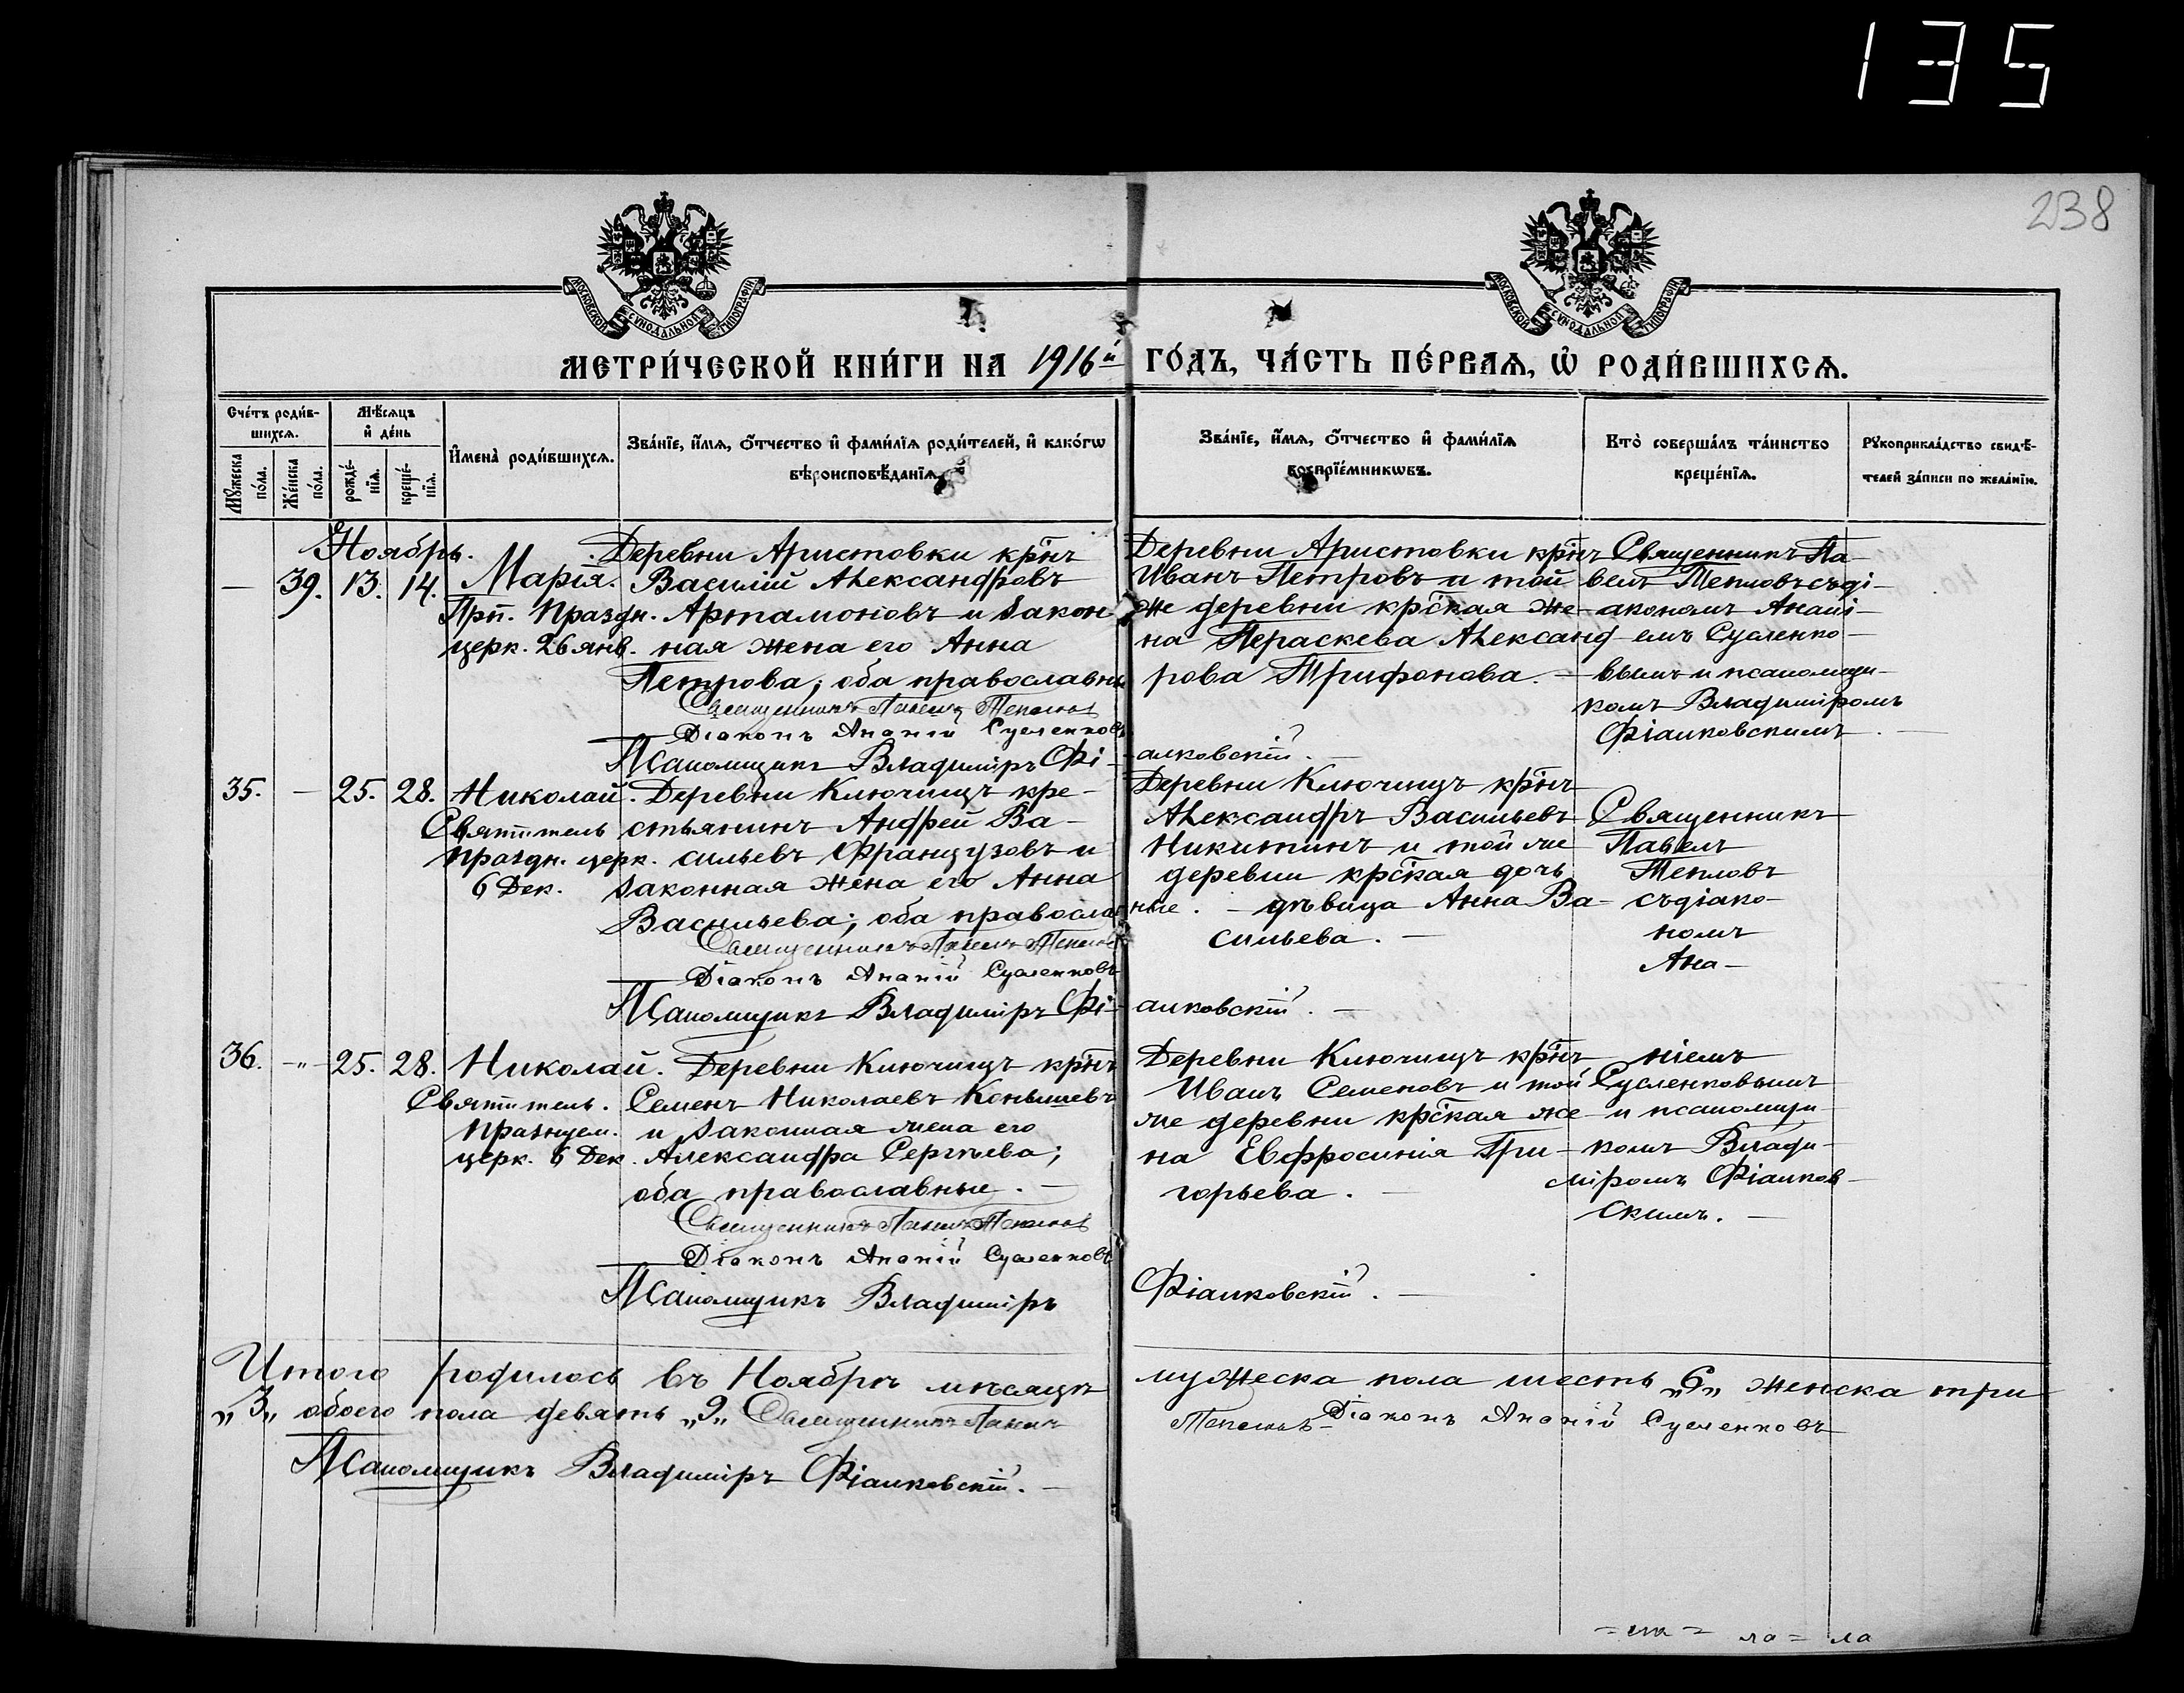 135
238
МОСКОВСКОЙ СѴНОДАЛЬНОЙ ТИПОГРАФІИ
МОСКОВСКОЙ СѴНОДАЛЬНОЙ ТИПОГРАФІИ
МЕТРИ́ЧЕСКОЙ КНИ́ГИ НА 1916й ГО́ДЪ, ЧА́СТЬ ПЕ́РВАѦ, Ѡ҆ РОДИ́ВШИХСѦ.
Сче́тъ роди́в-
шихсѧ.
Мꙋ́жеска
по́ла.
Же́нска
по́ла.
Мѣ́сѧцъ
и҆ де́нь
рожде́-
нїѧ.
креще́-
нїѧ.
И҆мена̀ роди́вшихсѧ.
Зва́нїе, и҆́мѧ, ѻ҆́тчество и҆ фами́лїѧ роди́телей, и҆ како́гѡ
вѣроисповѣ́данїѧ.
Зва́нїе, и҆́мѧ, ѻ҆́тчество и҆ фами́лїѧ
воспрїе́мникѡвъ.
Кто̀ соверша́лъ та́инство
креще́нїѧ.
Рꙋкоприкла́дство свидѣ́-
телей за́писи по жела́нїю.
Ноябрь.
— 39. 13. 14. Марія.
Прп. Праздн.
церк. 26 янв.
Деревни Аристовки кр҃нъ
Василій Александровъ
Артамоновъ и закон
ная жена его Анна
Петрова; оба православны
Священникъ Павелъ Тепловъ
Діаконъ Ананій Сусленковъ
Псаломщикъ Владиміръ Фі-
алковскій. —
Деревни Аристовки кр҃нъ
Иванъ Петровъ и той
же деревни кр҃ская же-
на Параскева Александ-
рова Трифонова. —
Священникъ Па-
велъ Тепловъ съ ді-
акономъ Анані-
емъ Сусленко-
вымъ и псаломщи-
комъ Владиміромъ
Фіалковскимъ. —
35. — 25. 28. Николай.
Святитель
праздн. церк.
6 Дек.
Деревни Ключищъ кре-
стьянинъ Андрей Ва-
сильевъ Французовъ и
законная жена его Анна
Васильева; оба православ
ные. —
Священникъ Павелъ Тепловъ
Діаконъ Ананій Сусленковъ
Псаломщикъ Владиміръ Фі-
алковскій. —
Деревни Ключищъ кр҃нъ
Александръ Васильевъ
Никитинъ и той же
деревни кр҃ская дочь
дѣвица Анна Ва-
сильева. —
Священникъ
Павелъ
Тепловъ
съ діако-
номъ
Ана-
36. -"- 25. 28. Николай.
Святитель.
Празнуем.
церк. 6 Дек.
Деревни Ключищъ кр҃нъ
Семенъ Николаевъ Конышевъ
и законная жена его
Александра Сергѣева;
оба православные. —
Священникъ Павелъ Тепловъ
Діаконъ Ананій Сусленковъ
Псаломщикъ Владиміръ
Фіалковскій. —
Деревни Ключищъ кр҃нъ
Иванъ Семеновъ и той
же деревни кр҃ская же-
на Евфросинія Гри-
горьева. —
ніемъ
Сусленковымъ
и псаломщи-
комъ Влади-
міромъ Фіалков-
скимъ. —
Итого родилось въ Ноябрѣ мѣсяцѣ мужеска пола шесть „6„ женска три
„3„ обоего пола девять „9„ Священникъ Павелъ Тепловъ Діаконъ Ананій Сусленковъ
Псаломщикъ Владиміръ Фіалковскій. —